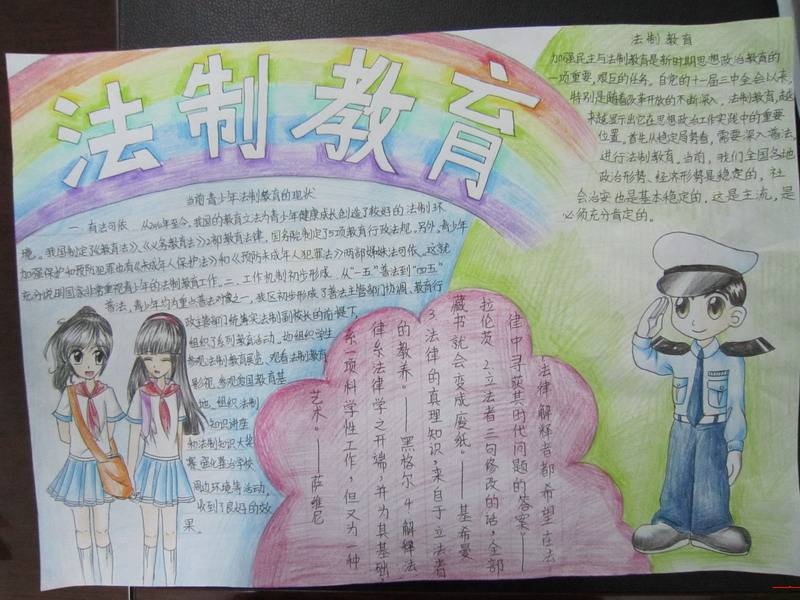 法制教育
当前青少年法制教育的现状
一、有法可依 从2010年至今,我国的教育立法为青少年健康成长创造了较好的法制环
境。我国制定了《教育法》、《义务教育法》2部教育法律,国务院制定了5项教育行政法规。另外,青少年
加强保护和预防犯罪也有《未成年人保护法》和《预防未成年人犯罪法》两部姊妹法可依。这就
充分说明国家非常重视青少年的法制教育工作。二、工作机制初步形成。从“一五”普法到“四五”
普法,青少年均为重点普法对象之一,我区初步形成了普法主管部门协调、教育行
政主管部门统筹实法制副校长的前提下,
组织了系列教育活动。如组织学生
参观法制教育展览、观看法制教育
影视、参观爱国教育基
地、组织法制
知识讲座
和法制知识大奖
赛、强化整治学校
周边环境等活动,
收到了良好的效
果。
法制教育
加强民主与法制教育是新时期思想政治教育的
一项重要,艰巨的任务。自党的十一届三中全会以来,
特别是随着改革开放的不断深入,法制教育,越
来越显示出它在思想政治工作实践中的重要
位置。首先从稳定局势看,需要深入普法
进行法制教育。当前,我们全国各地
政治形势、经济形势是稳定的,社
会治安也是基本稳定的,这是主流,是
必须充分肯定的。
法律解释者都希望在法
律中寻获其时代问题的答案”——
拉伦茨 2立法者三句修改的话,全部
藏书就会变成废纸 ——基希曼
3法律的真理知识,来自于立法者
的教养”——黑格尔 4解释法
律系法律学之开端,并为其基础,
系一项科学性工作,但又为一种
艺术。——萨维尼